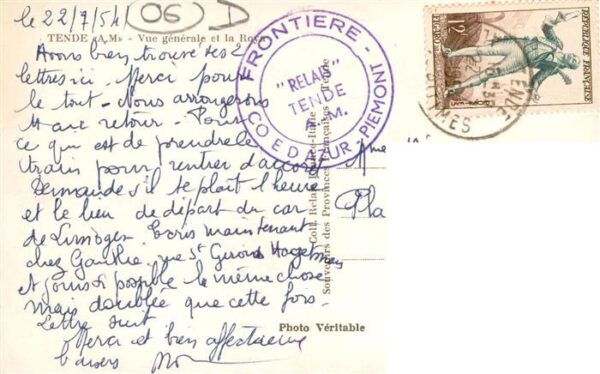 le 22/7/54
06 D
TENDE (A.M) - Vue générale et la Roya
Avons bien trouvé tes 2
lettres ici. Merci pour
le tout. Nous arrangerons
au retour. Pour
ce qui est de prendre le
train pour rentrer d'accord
Demande s'il te plaît l'heure
et le lieu de départ du car
de Limoges. Ecris maintenant
chez Gauthier rue St Girons Hagetmau
et si possible le même chose
mais doublée que cette fois.
Lettre suit
Merci et bien affectueux
baisers
FRONTIERE - PIEMONT
"RELAIS"
TENDE
A. M.
COE D'AZUR
Coll. Relais France-Italie - Tende
Souvenirs des Provinces Françaises
Photo Véritable
12F
REPUBLIQUE FRANÇAISE
TENDE
ALPES MARITIMES
Mme
Pla